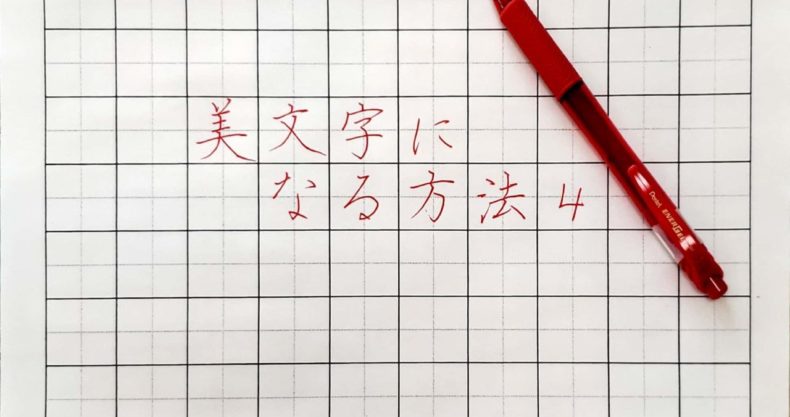 美文字に
なる方法4
Pentel ENERGEL